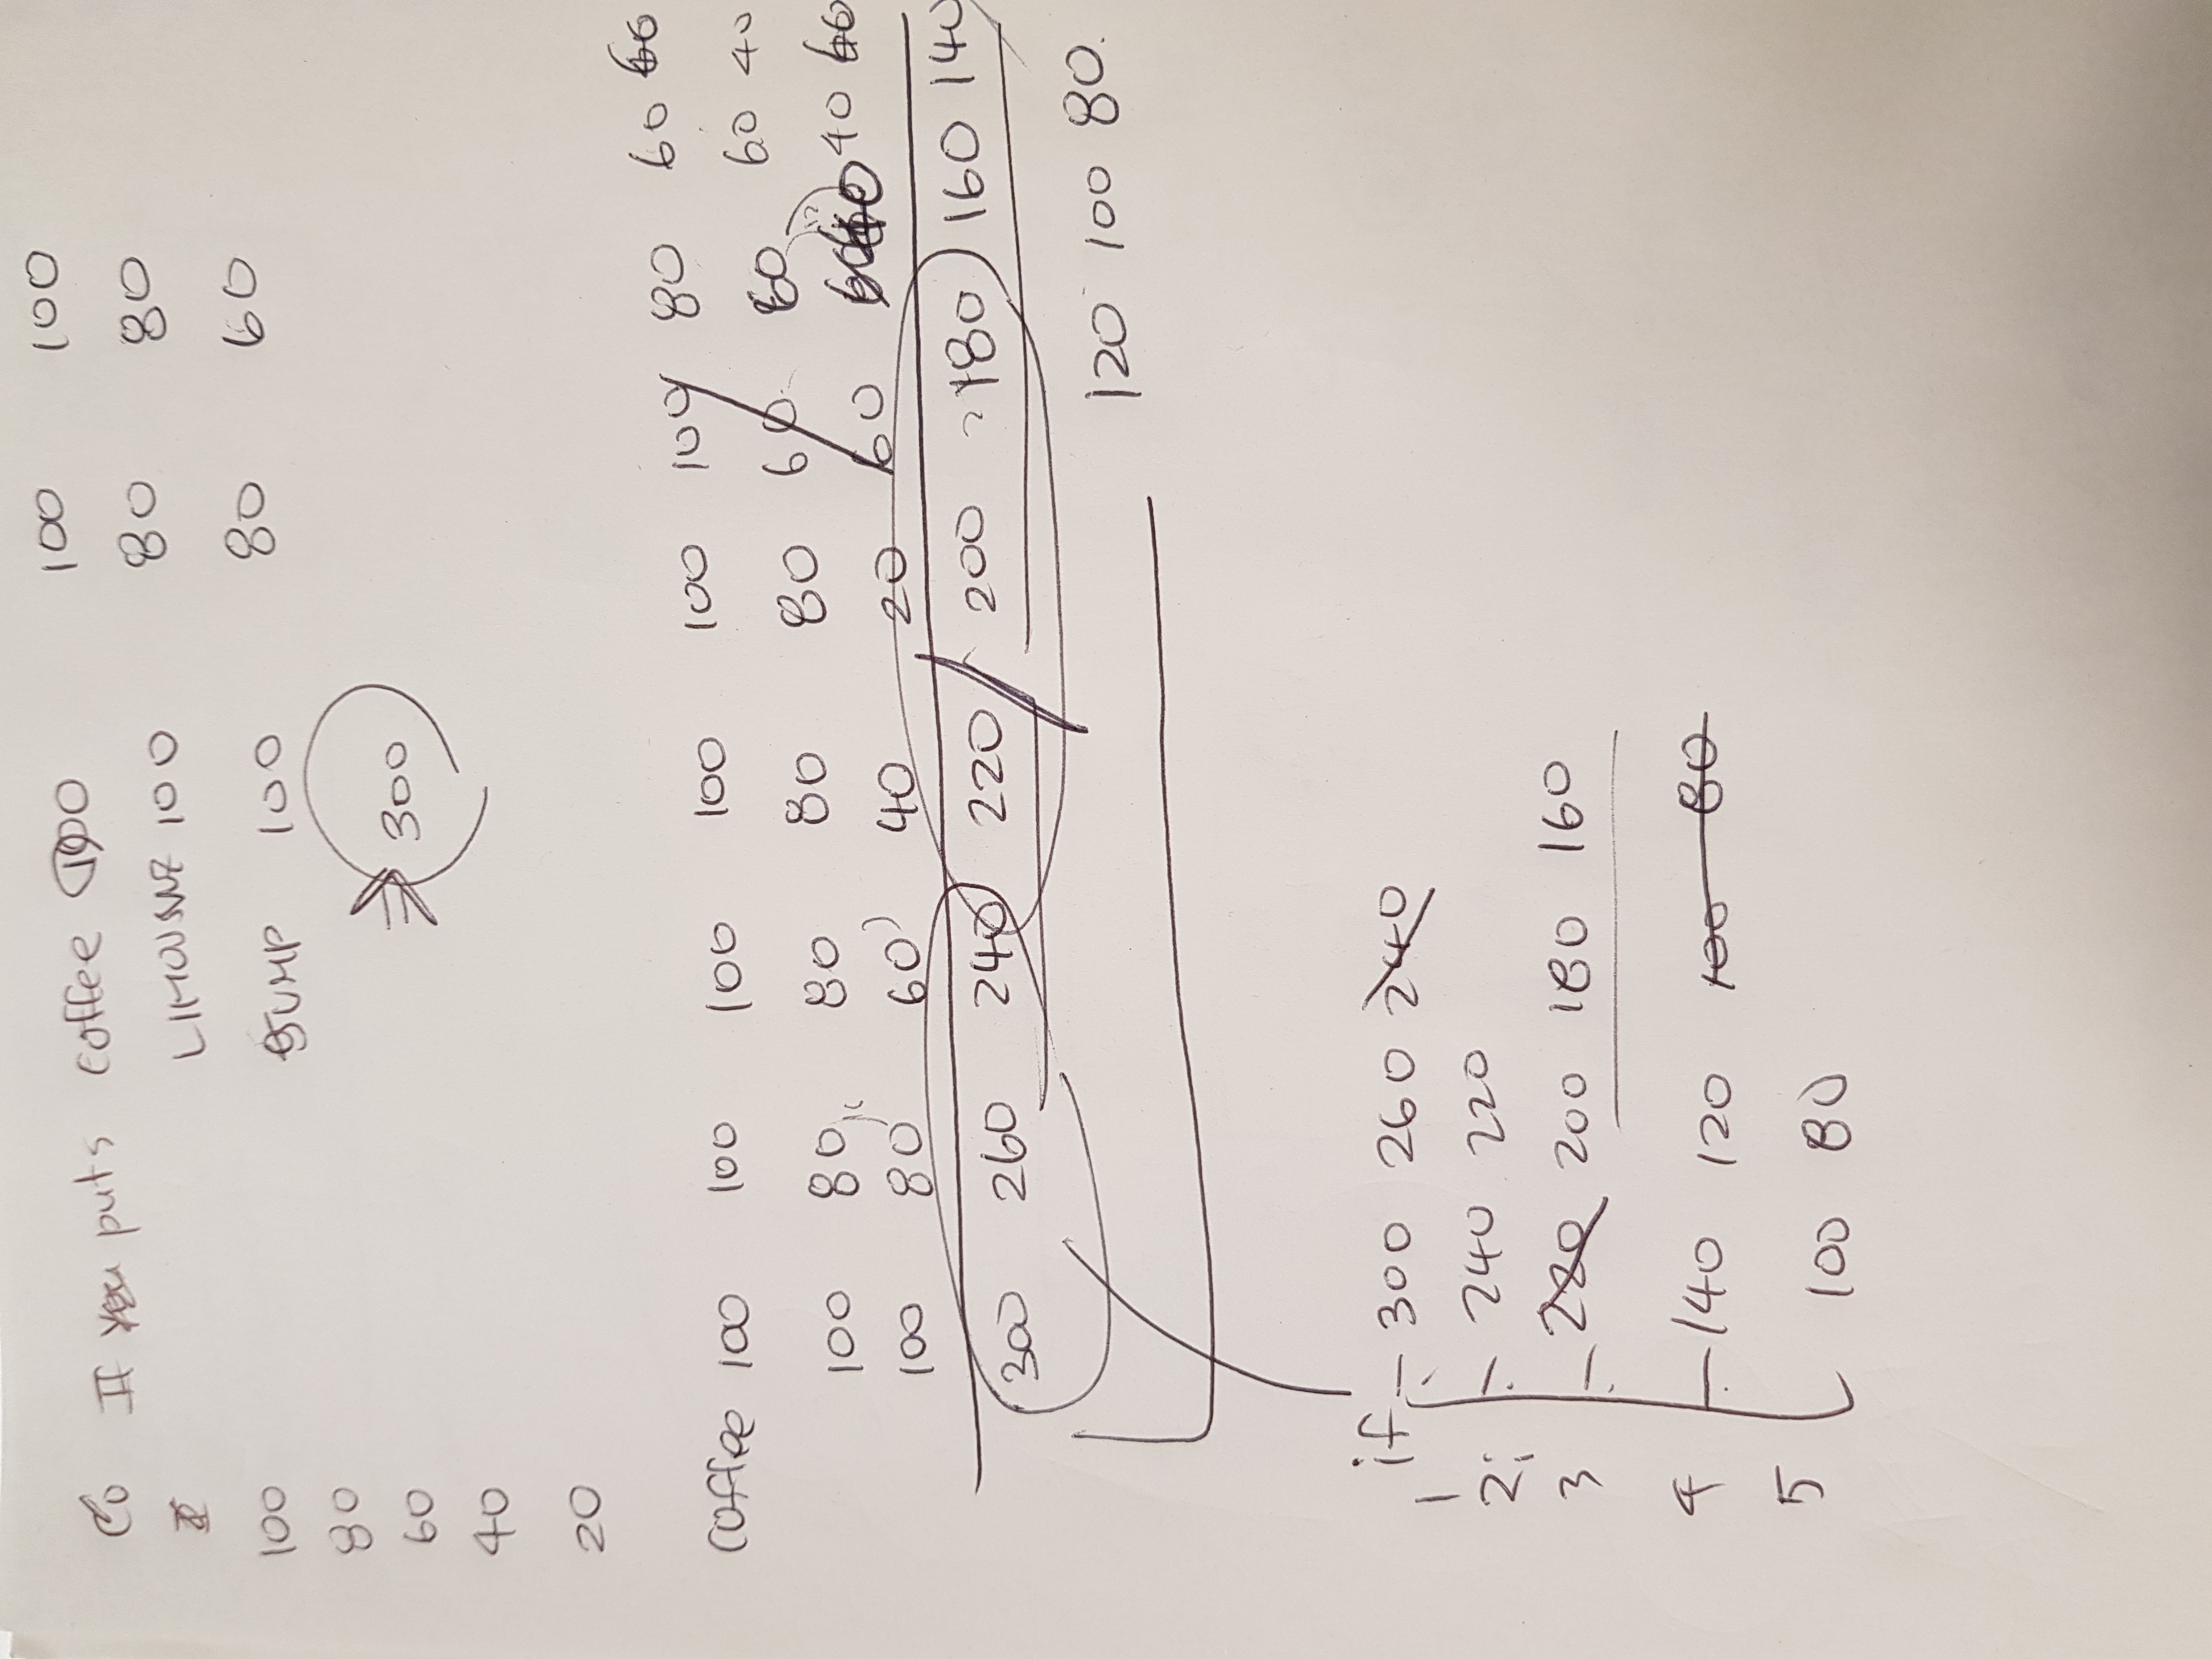 If you puts coffee 100 100 100
LIMOUSINE 100 80 80
JUMP 100 80 60
300
100
80
60
40
20
coffee 100 100 100 100 100 100 80 60
100 80 80 80 80 60 60 60 40
100 80 60 40 20 60 40
300 260 240 220 200 180 160 140
120 100 80.
if 300 260 240
1
2; 240 220
3 220 200 180 160
4 140 120 100 80
5 100 80